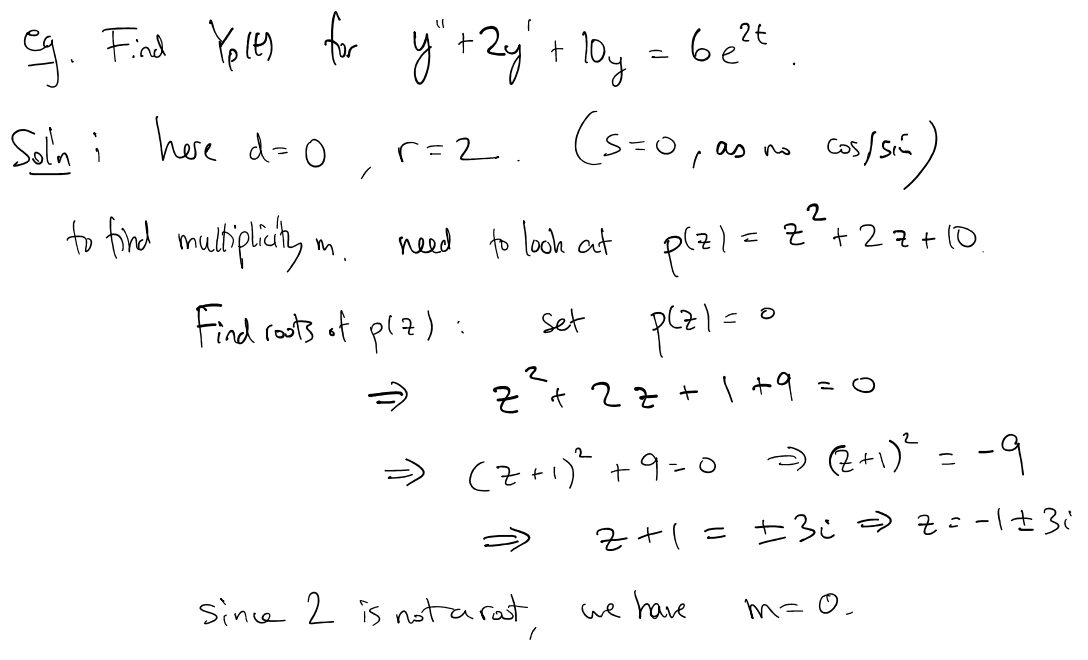 eg. Find Yp(t) for y'' + 2y' + 10y = 6e^{2t}.
Sol'n : here d=0, r=2. (s=0, as no cos/sin)
to find multiplicity m. need to look at p(z) = z^2 + 2z + 10.
Find roots of p(z) : set p(z) = 0
⇒ z^2 + 2z + 1 + 9 = 0
⇒ (z+1)^2 + 9 = 0 ⇒ (z+1)^2 = -9
⇒ z+1 = ±3i ⇒ z = -1±3i
since 2 is not a root, we have m=0.